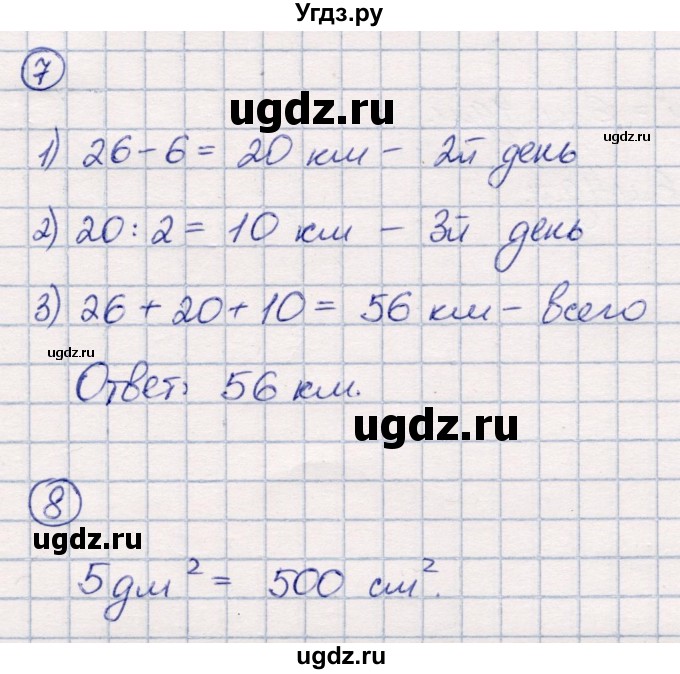 Угдз.ру
7
ugdz.ru
ugdz.ru
1) 26 - 6 = 20 км - 2й день
2) 20 : 2 = 10 км - 3й день
3) 26 + 20 + 10 = 56 км - всего
ugdz.ru
Ответ: 56 км.
ugdz.ru
8
ugdz.ru
5 дм² = 500 см².
ugdz.ru